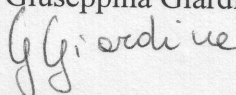 Giuseppina Giardi
G Giardine